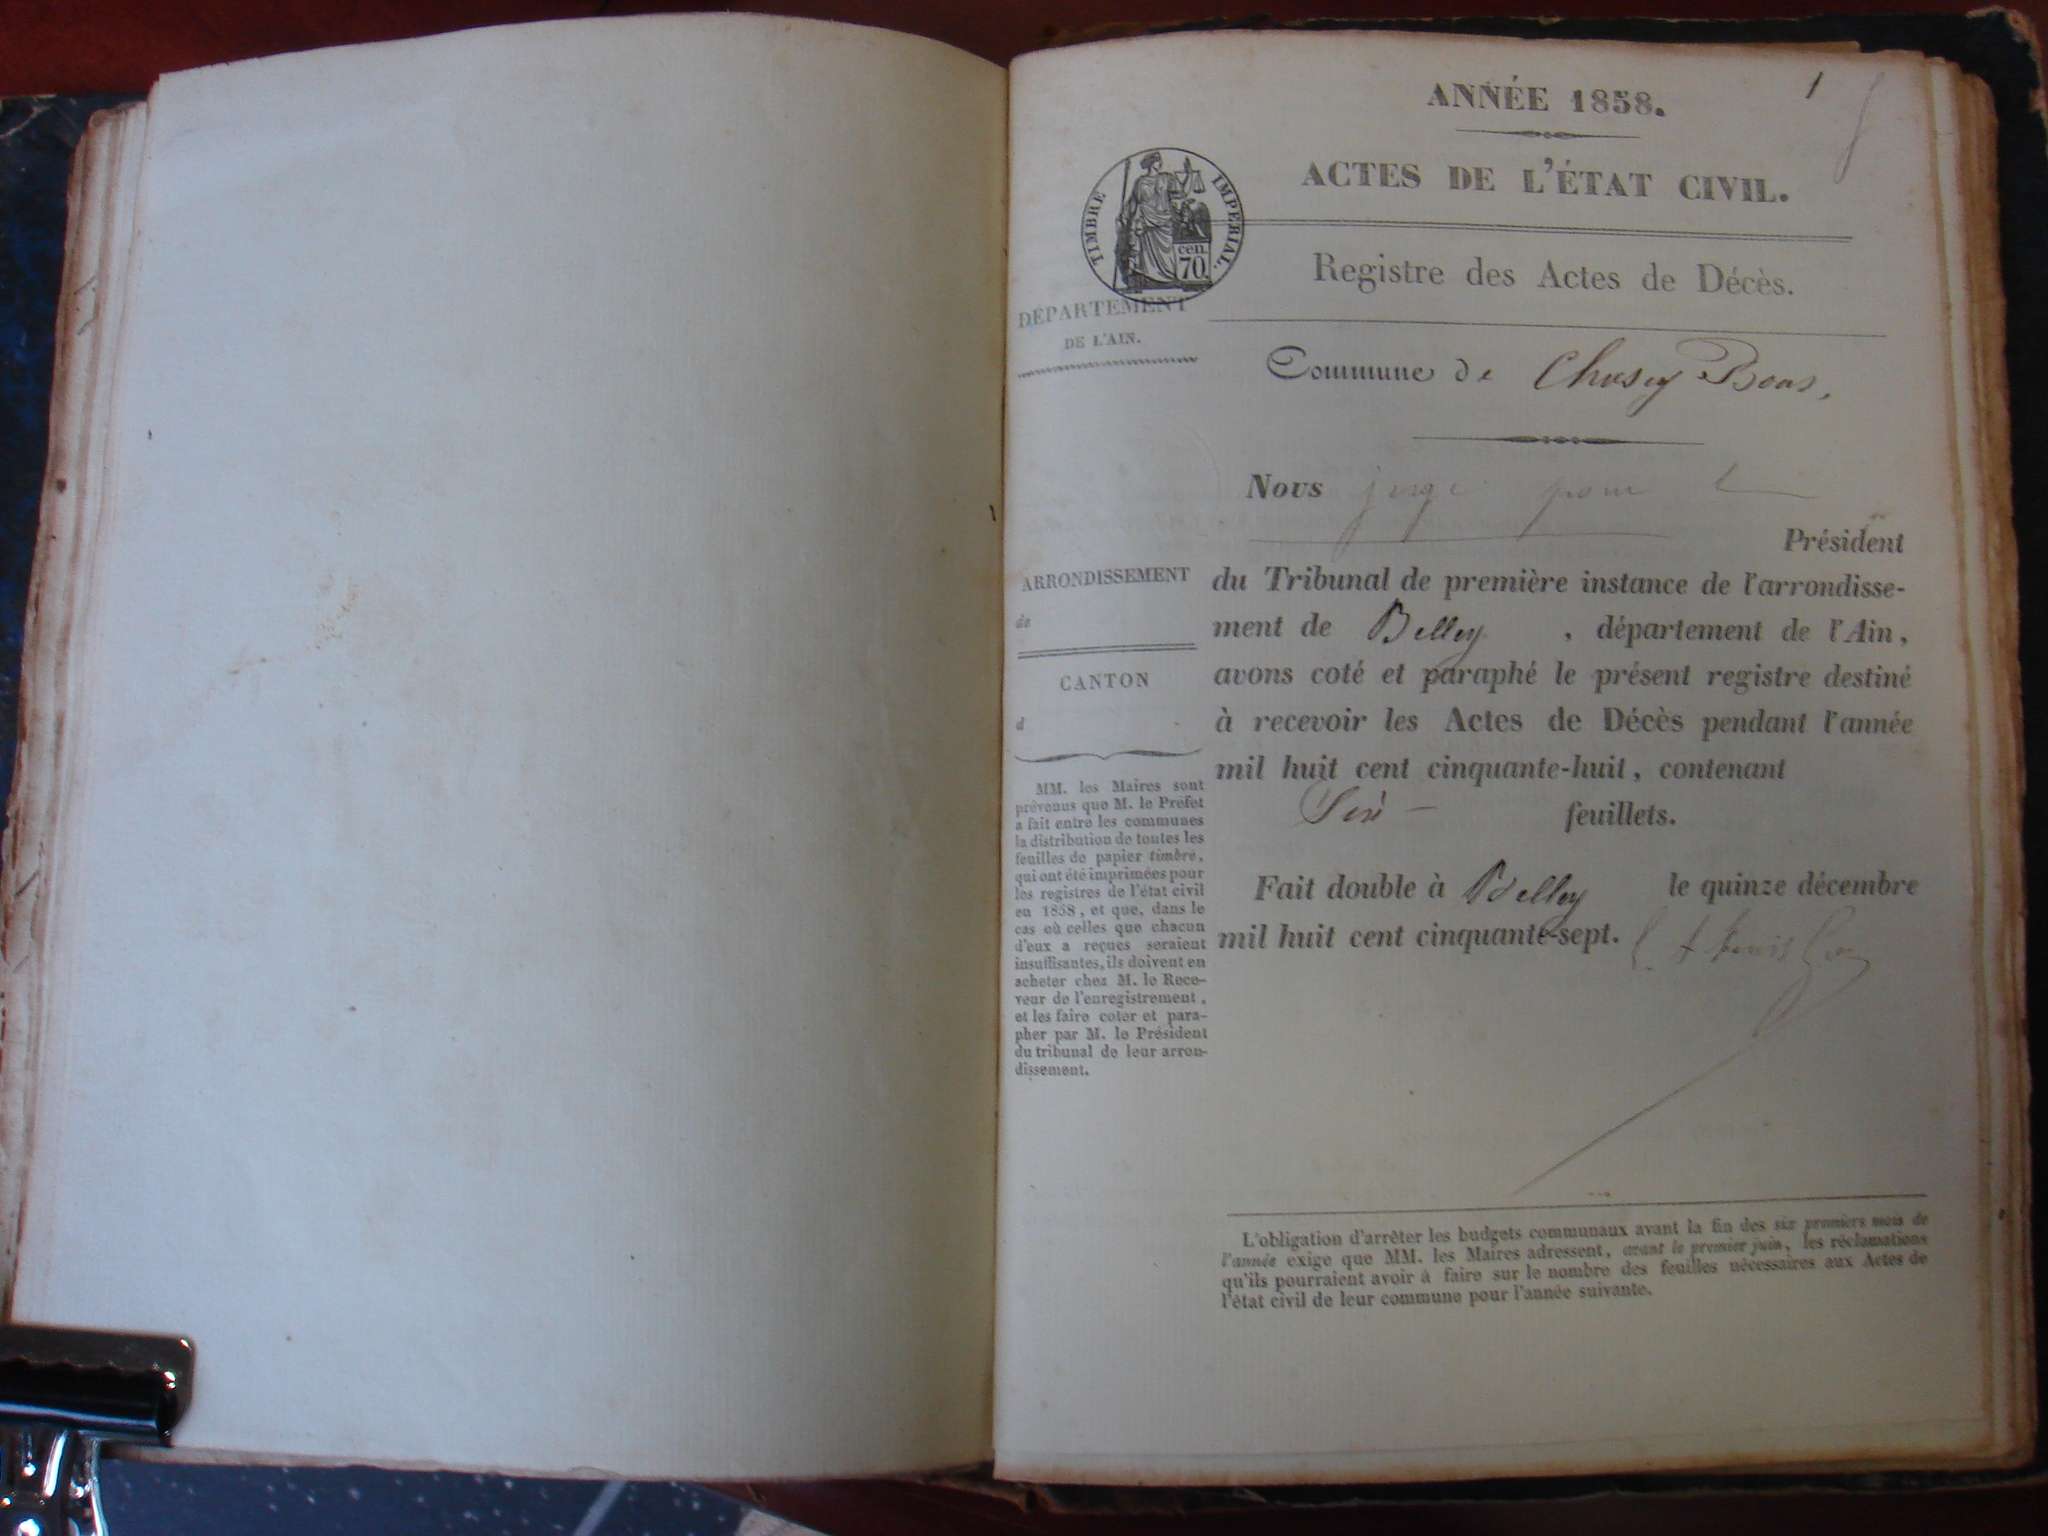 1
ANNÉE 1858.
ACTES DE L'ÉTAT CIVIL.
TIMBRE IMPERIAL.
cen.
70.
Registre des Actes de Décès.
DÉPARTEMENT
DE L'AIN.
Commune de Chasey Bons,
Nous juge pour le
Président
du Tribunal de première instance de l'arrondisse-
ment de Belley, département de l'Ain,
avons coté et paraphé le présent registre destiné
à recevoir les Actes de Décès pendant l'année
mil huit cent cinquante-huit, contenant
Six feuillets.
Fait double à Belley le quinze décembre
mil huit cent cinquante-sept.
ARRONDISSEMENT
de
CANTON
d
MM. les Maires sont
prévenus que M. le Préfet
a fait entre les communes
la distribution de toutes les
feuilles de papier timbré,
qui ont été imprimées pour
les registres de l'état civil
en 1858, et que, dans le
cas où celles que chacun
d'eux a reçues seraient
insuffisantes, ils doivent en
acheter chez M. le Rece-
veur de l'enregistrement,
et les faire coter et para-
pher par M. le Président
du tribunal de leur arron-
dissement.
L'obligation d'arrêter les budgets communaux avant la fin des six premiers mois de
l'année exige que MM. les Maires adressent, avant le premier juin, les réclamations
qu'ils pourraient avoir à faire sur le nombre des feuilles nécessaires aux Actes de
l'état civil de leur commune pour l'année suivante.